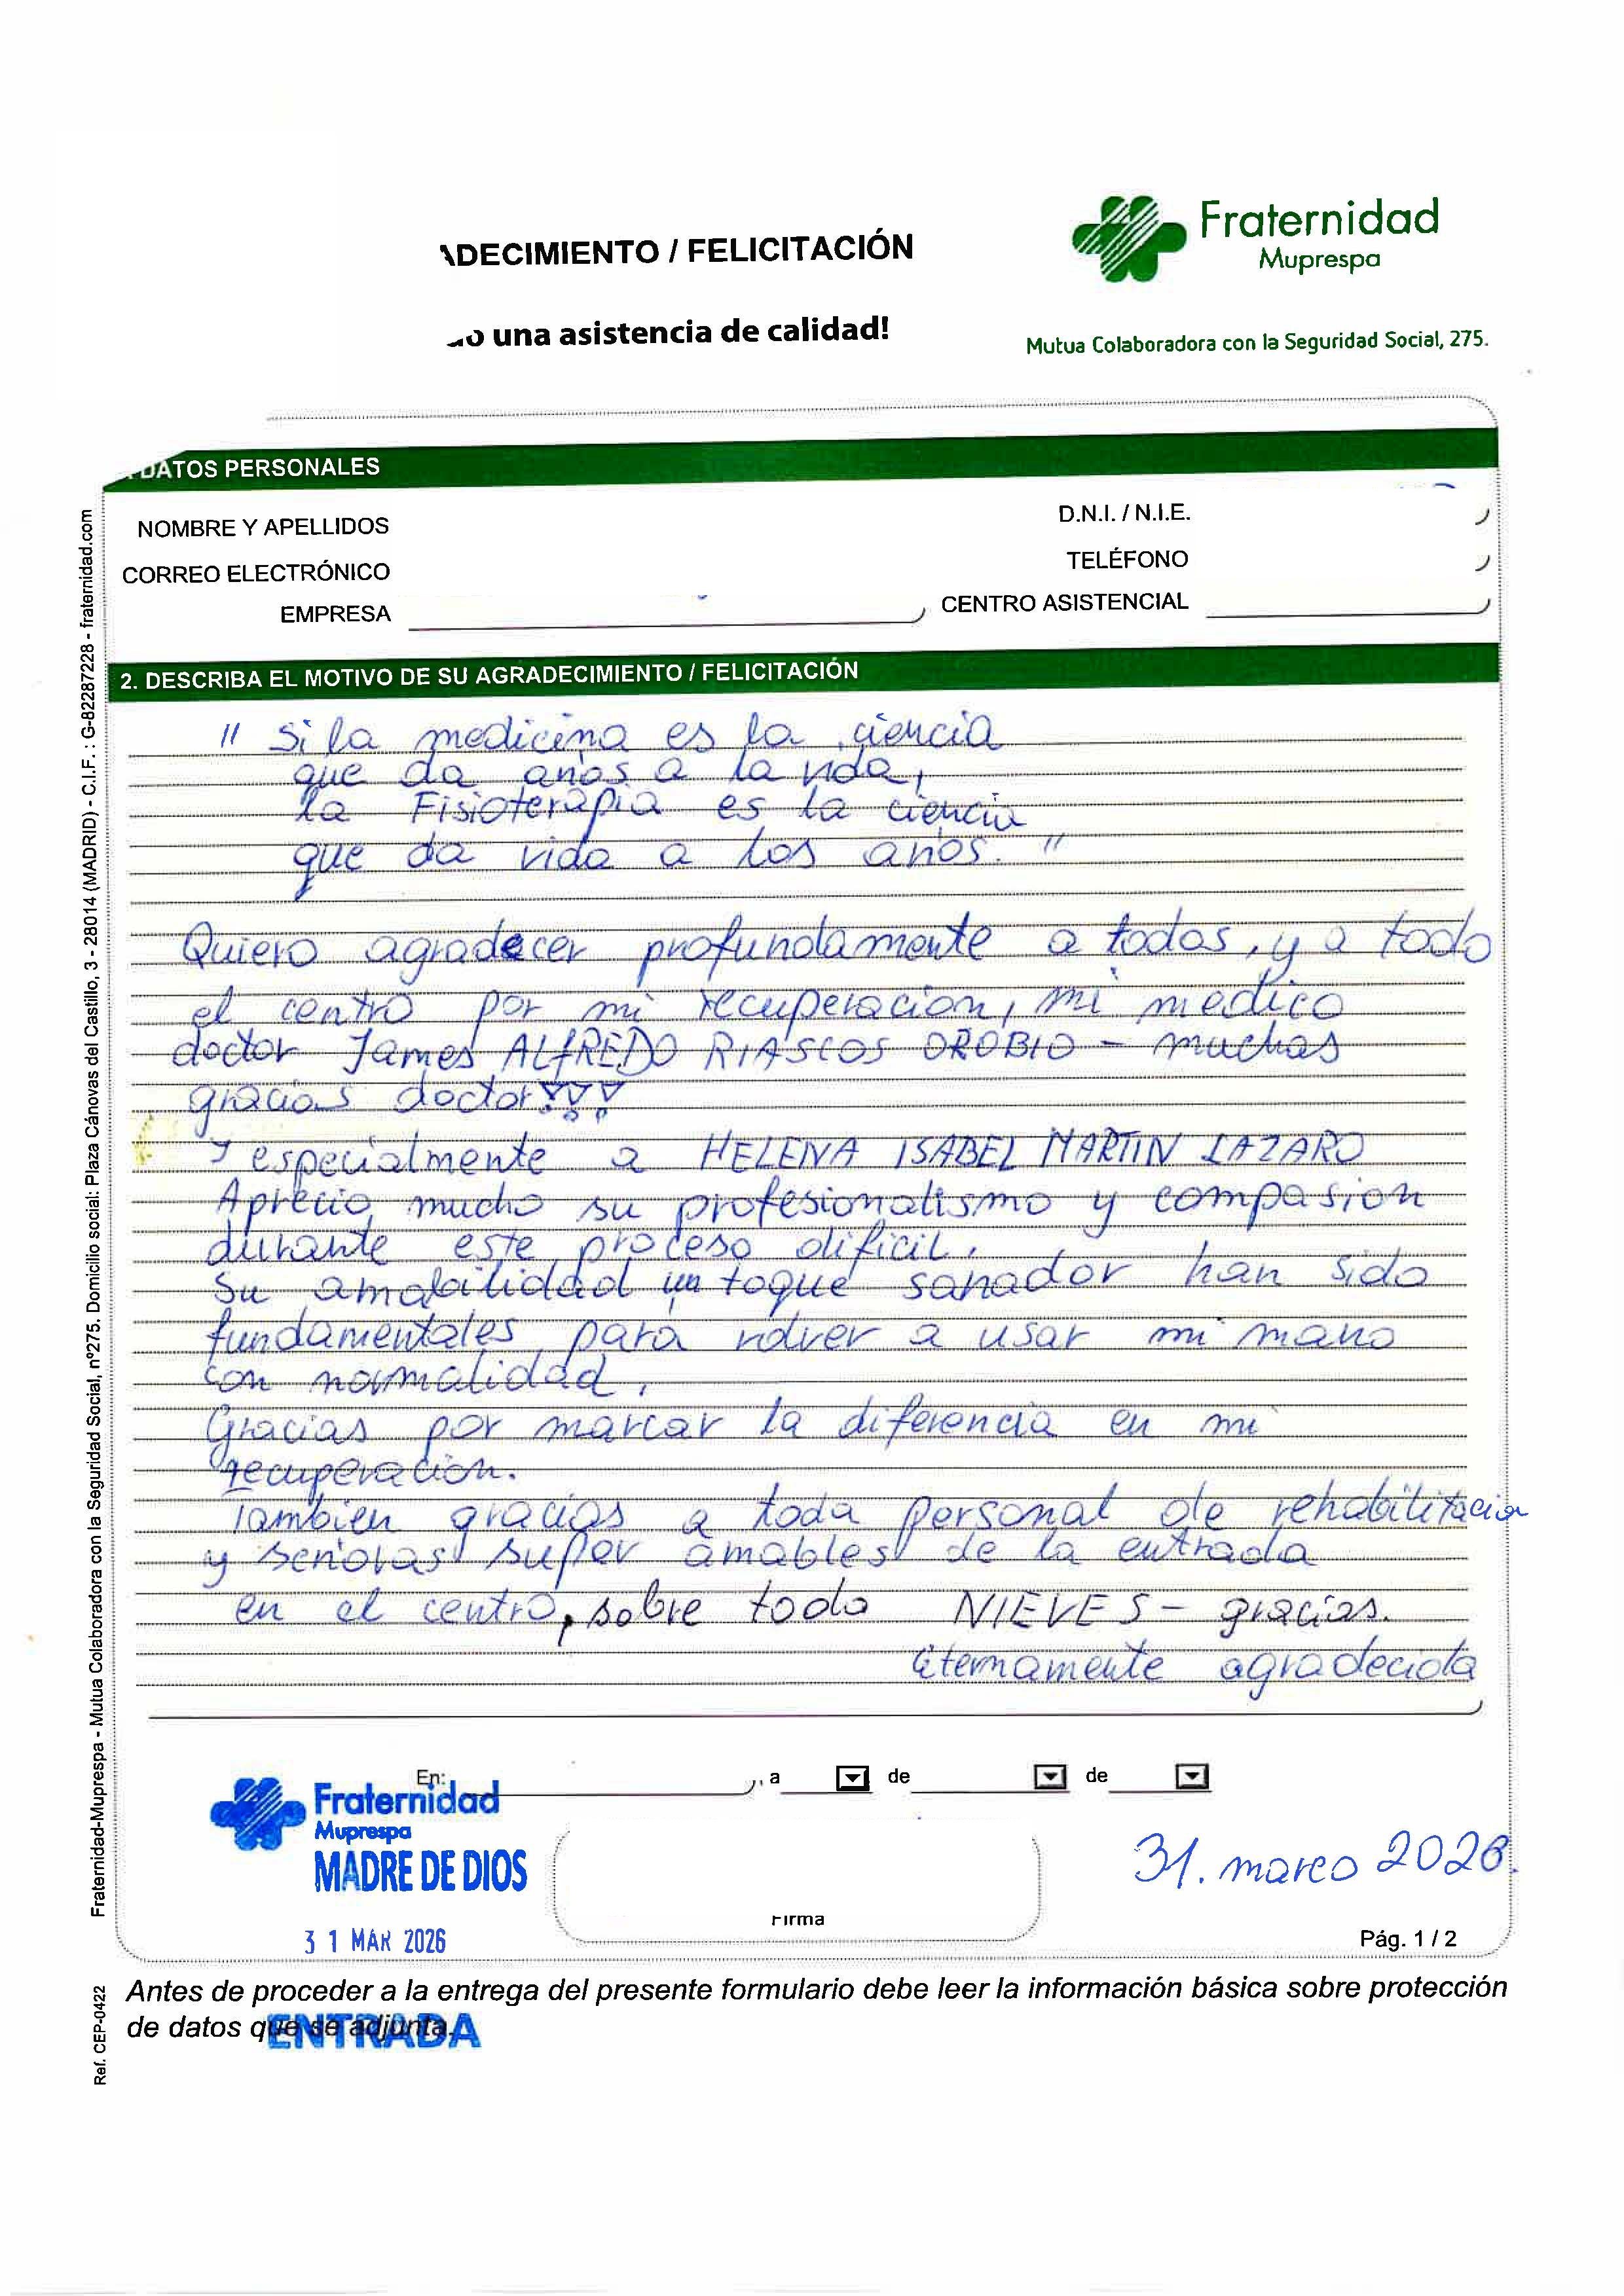 ADECIMIENTO / FELICITACIÓN
una asistencia de calidad!
Fraternidad
Muprespa
Mutua Colaboradora con la Seguridad Social, 275.
DATOS PERSONALES
NOMBRE Y APELLIDOS
D.N.I. / N.I.E.
CORREO ELECTRÓNICO
TELÉFONO
EMPRESA
CENTRO ASISTENCIAL
2. DESCRIBA EL MOTIVO DE SU AGRADECIMIENTO / FELICITACIÓN
" Si la medicina es la ciencia
que da años a la vida,
la Fisioterapia es la ciencia
que da vida a los años. "
Quiero agradecer profundamente a todos, y a todo
el centro por mi recuperacion, mi medico
doctor James ALFREDO RIASCOS OROBIO - muchas
gracias doctor!!!
Y especialmente a HELENA ISABEL MARTIN LAZARO
Aprecio mucho su profesionalismo y compasion
durante este proceso dificil.
Su amabilidad un toque sanador han sido
fundamentales para volver a usar mi mano
con normalidad.
Gracias por marcar la diferencia en mi
recuperacion.
Tambien gracias a toda personal de rehabilitacion
y señoras super amables de la entrada
en el centro, sobre todo NIEVES - gracias.
Eternamente agradecida
En:
, a
de
de
Fraternidad
Muprespa
MADRE DE DIOS
31 MAR 2026
ENTRADA
Firma
31. marco 2026.
Pág. 1 / 2
Antes de proceder a la entrega del presente formulario debe leer la información básica sobre protección
de datos que se adjunta.
Fraternidad-Muprespa - Mutua Colaboradora con la Seguridad Social, nº275. Domicilio social: Plaza Cánovas del Castillo, 3 - 28014 (MADRID) - C.I.F. : G-82287228 - fraternidad.com
Ref. CEP-0422